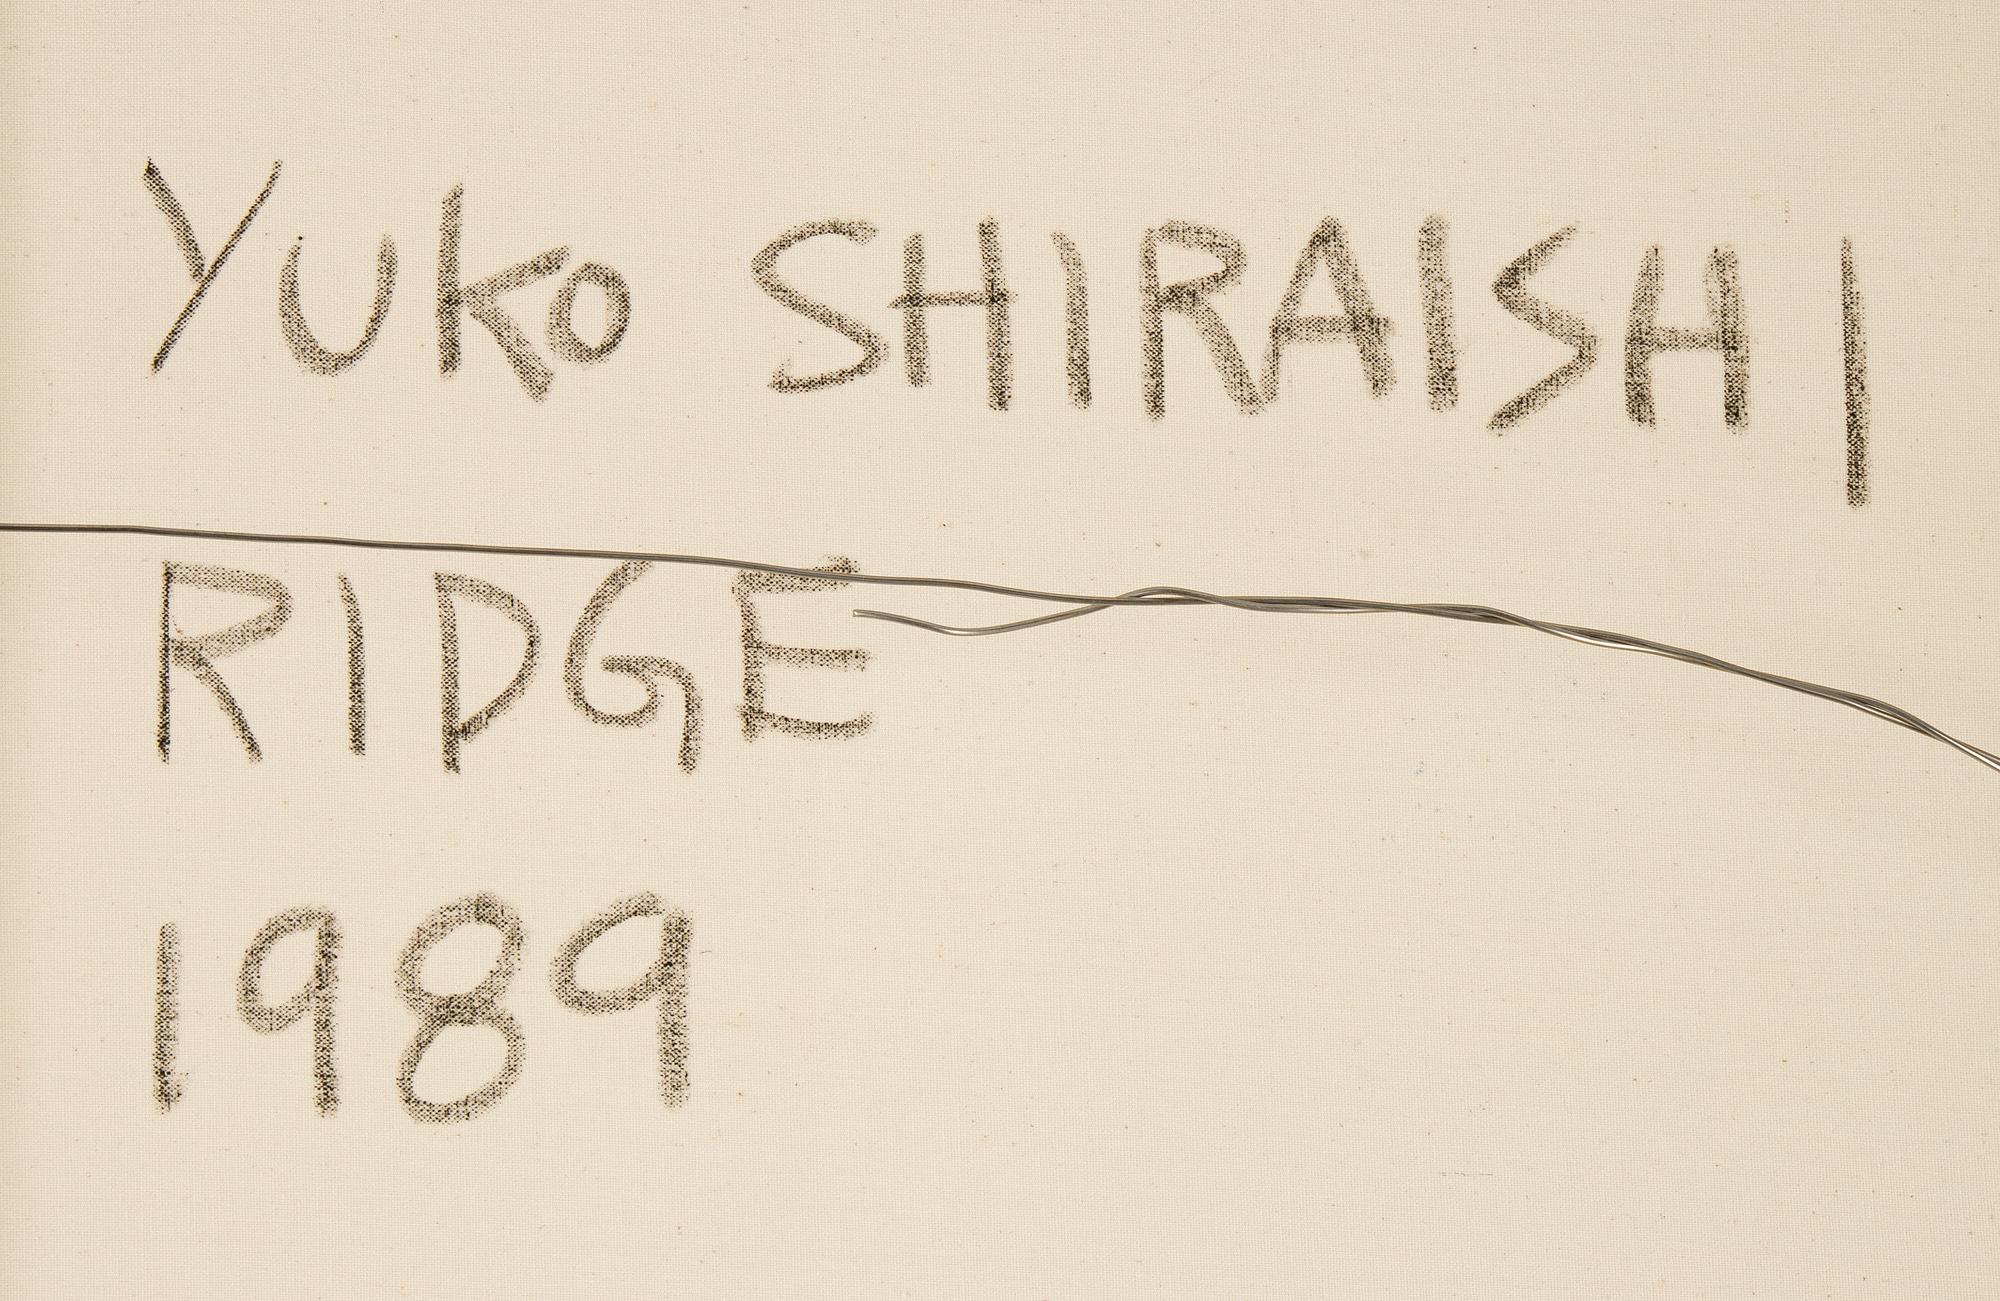 YUKO SHIRAISHI
RIDGE
1989